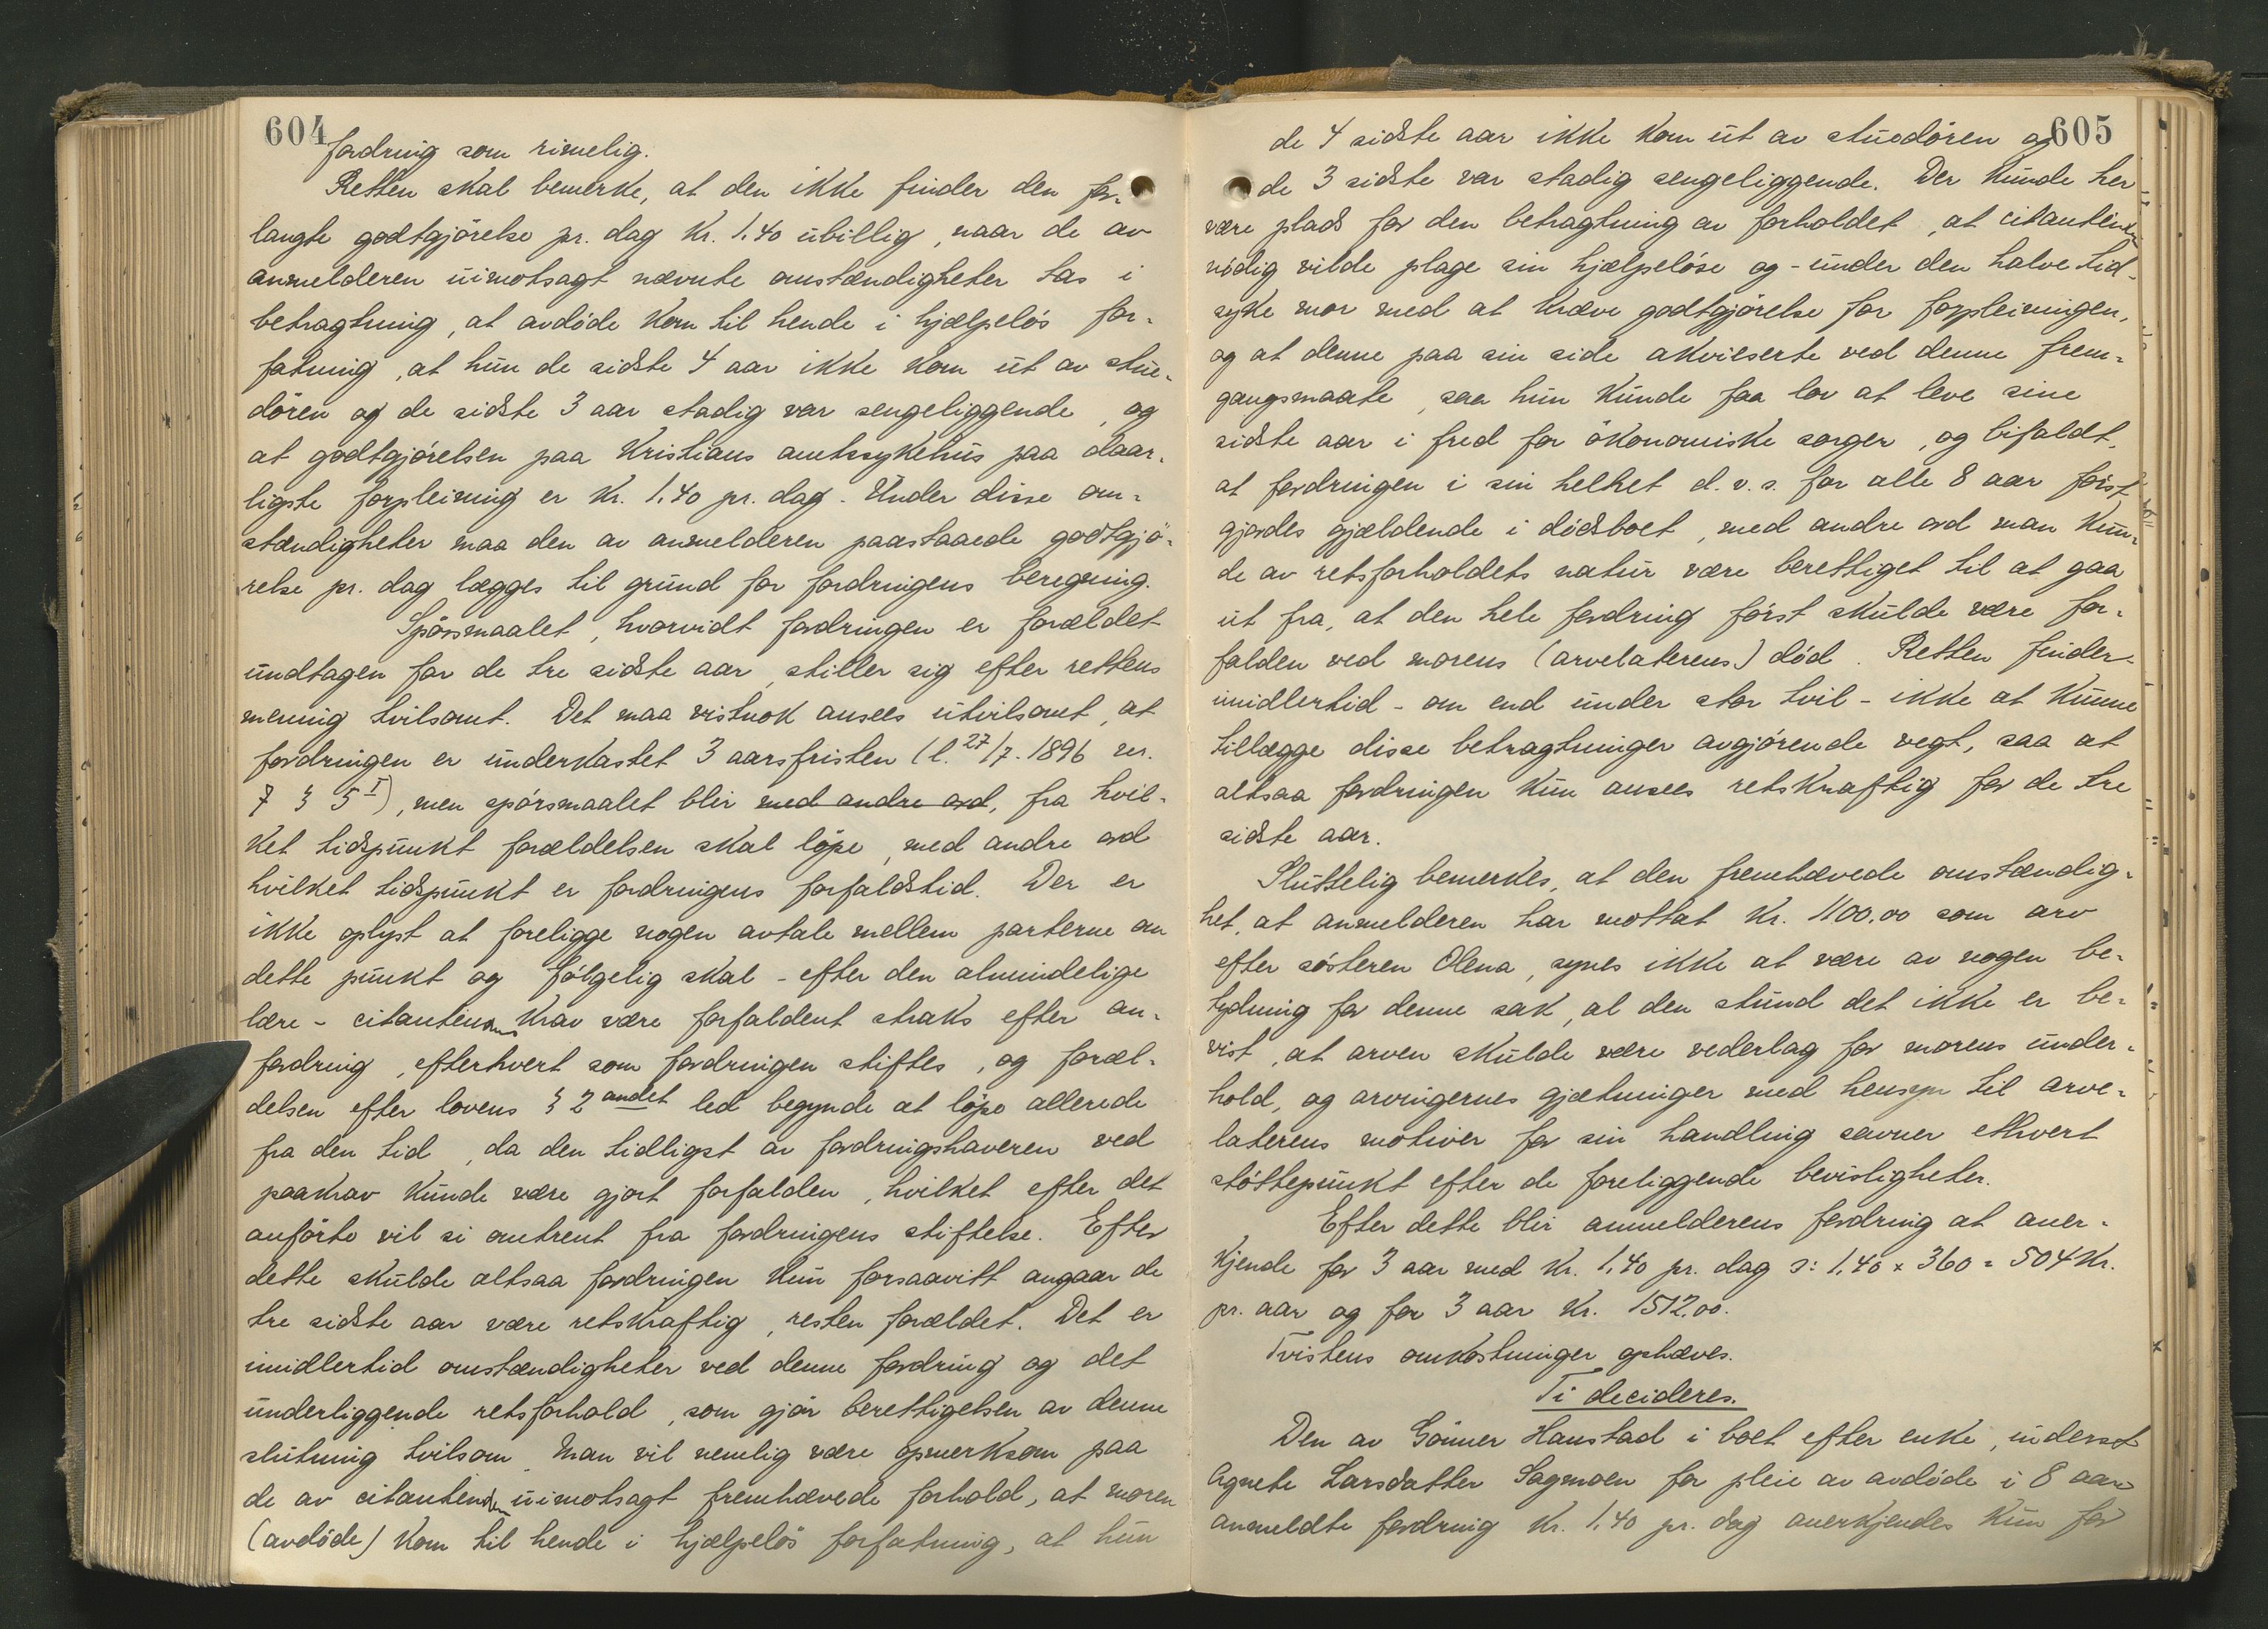 604
fordring som rimelig.
Retten skal bemerke, at den ikke finder den for-
langte godtgjörelse pr. dag Kr. 1.40 ubillig, naar de av
anmelderen uimotsagt nævnte omstændigheter tas i
betragtning, at avdöde kom til hende i hjælpelös for-
fatning, at hun de sidste 4 aar ikke kom ut av stue-
dören og de sidste 3 aar stadig var sengeliggende, og
at godtgjörelsen paa Kristians amtssykehus paa daar-
ligste forpleining er Kr. 1.40 pr. dag. Under disse om-
stændigheter maa den av anmelderen paastaaede godtgjö-
relse pr. dag lægges til grund for fordringens beregning.
Spörsmaalet, hvorvidt fordringen er forældet
undtagen for de tre sidste aar, stiller sig efter rettens
mening tvilsomt. Det maa vistnok ansees utvilsomt, at
fordringen er underkastet 3 aarsfristen (l. 27/7. 1896 nr.
7 § 5 I), men spörsmaalet blir med andre ord, fra hvil-
ket tidspunkt forældelsen skal löpe, med andre ord
hvilket tidspunkt er fordringens forfaldstid. Der er
ikke oplyst at foreligge nogen avtale mellem parterne om
dette punkt og fölgelig skal - efter den almindelige
lære - citantindens krav være forfaldent straks efter an-
fordring, efterhvert som fordringen stiftes, og foræl-
delsen efter lovens § 2 andet led begynde at löpe allerede
fra den tid, da den tidligst av fordringshaveren ved
paakrav kunde være gjort forfalden, hvilket efter det
anförte vil si omtrent fra fordringens stiftelse. Efter
dette skulde altsaa fordringen kun forsaavitt angaar de
tre sidste aar være retskraftig, resten forældet. Det er
imidlertid omstændigheter ved denne fordring og det
underliggende retsforhold, som gjör berettigelsen av denne
slutning tvilsom. Man vil nemlig være opmerksom paa
de av citantinden uimotsagt fremhævede forhold, at moren
(avdöde) kom til hende i hjælpelös forfatning, at hun
605
de 4 sidste aar ikke kom ut av stuedören og
de 3 sidste var stadig sengeliggende. Der kunde her
være plads for den betragtning av forholdet, at citantinden
nödig vilde plage sin hjælpelöse og - under den halve tid -
syke mor med at kræve godtgjörelse for forpleiningen,
og at denne paa sin side akvieserte ved denne frem-
gangsmaate, saa hun kunde faa lov at leve sine
sidste aar i fred for ökonomiske sorger, og bifaldt,
at fordringen i sin helhet d.v.s. for alle 8 aar först
gjordes gjældende i dödsboet, med andre ord man kun-
de av retsforholdets natur være berettiget til at gaa
ut fra, at den hele fordring först skulde være for-
falden ved morens (arvelaterens) död. Retten finder
imidlertid - om end under stor tvil - ikke at kunne
tillægge disse betragtninger avgjörende vegt, saa at
altsaa fordringen kun ansees retskraftig for de tre
sidste aar.
Sluttelig bemerkes, at den fremhævede omstændig-
het, at anmelderen har mottat Kr. 1100.00 som arv
efter sösteren Olena, synes ikke at være av nogen be-
tydning for denne sak, al den stund det ikke er be-
vist, at arven skulde være vederlag for morens under-
hold, og arvingernes gjætninger med hensyn til arve-
laterens motiver for sin handling savner ethvert
stöttepunkt efter de foreliggende bevisligheter.
Efter dette blir anmelderens fordring at aner-
kjende for 3 aar med Kr. 1.40 pr. dag ɔ: 1.40 x 360 = 504 Kr.
pr. aar og for 3 aar Kr. 1512.00.
Tvistens omkostninger ophæves.
Ti decideres.
Den av Gönner Hanstad i boet efter enke, inderst
Agnete Larsdatter Sagmoen for pleie av avdöde i 8 aar
anmeldte fordring Kr. 1.40 pr. dag anerkjendes kun for